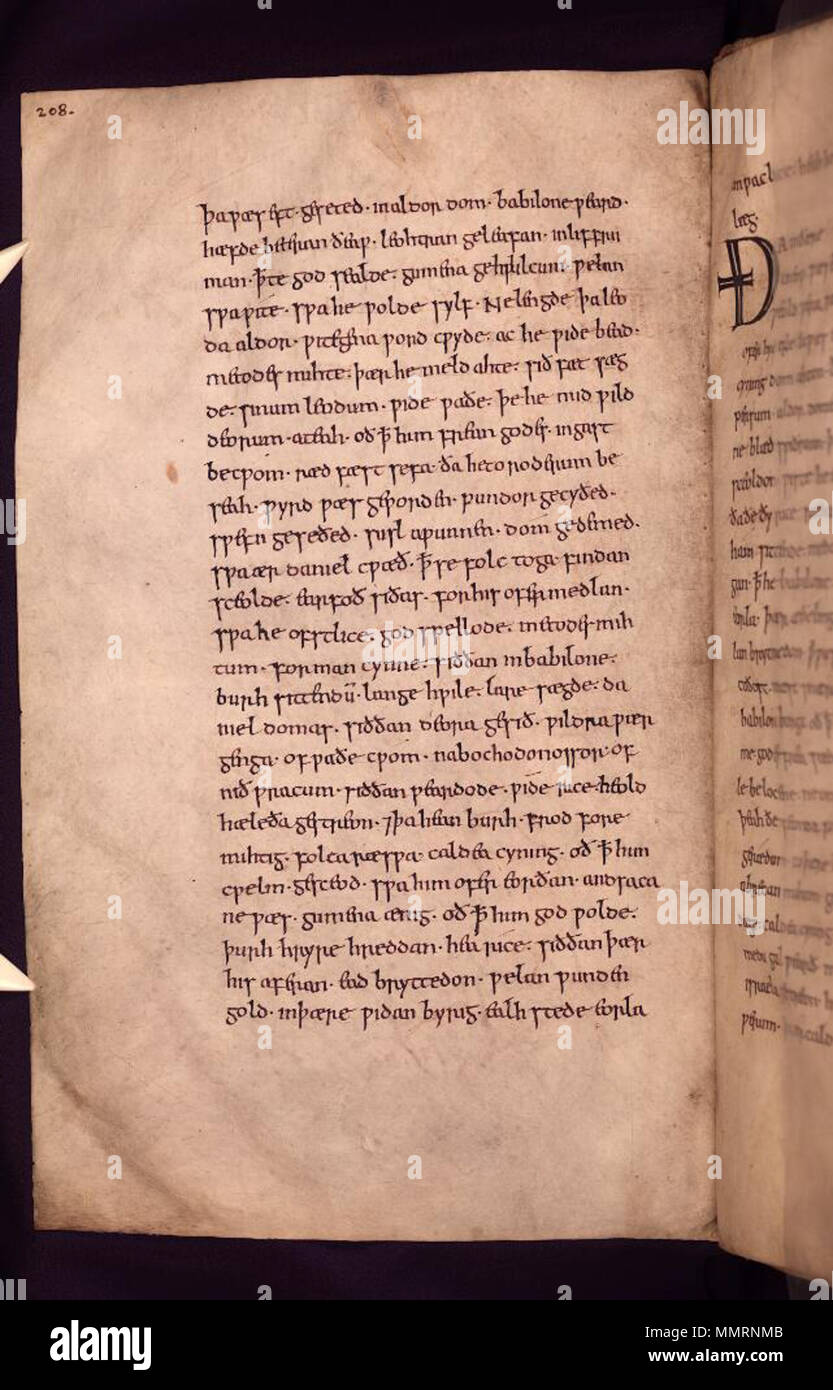 208.
þa ƿæs eft · geseted · in aldor dom · babilone ƿeard ·
hæfde beteran ðeaƿ · leohtran geleafan · in liffrui
man · ꝥte god sealde · gumena gehƿilcum · ƿelan
sƿa ƿite · sƿa he ƿolde sylf · Ne lengde þa leo
da aldor · ƿitegena ƿord cƿyde · ac he ƿide bead ·
metodes mihte · þær he meld ahte · sið fæt sæg
de · sinum leodum · ƿide ƿaðe · þe he mid ƿild
deorum · ateah · oð ꝥ him frean godes · in gast
becƿom · ræd fæst sefa · ða he to roderum be
seah · ƿyrd ƿæs geƿorden · ƿundor gecyðed ·
sƿefn geseðed · susl aƿunnen · dom gedemed ·
sƿa ær daniel cƿæð · ꝥ se folc toga findan
sceolde · earfoð siðas · for his ofermedlan ·
sƿa he ofstlice · god spellode · metodes mih
tum · for man cynne · siððan in babilone ·
burh sittendū · lange hƿile · lare sægde · da
niel domas · siððan deora gesið · ƿildra ƿær
genga · of ƿaðe cƿom · nabochodonossor · of
nið ƿracum · siððan ƿeardode · ƿide rice · heold
hæleða gestreon · ⁊ þa hean burh · frod fore
mihtig · folca ræsƿa · caldea cyning · oð ꝥ him
cƿelm · gesceod · sƿa him ofer eorðan · andsaca
ne ƿæs · gumena ænig · oð ꝥ him god ƿolde ·
þurh hryre hreddan · hea rice · siððan þær
his aferan · ead bryttedon · ƿelan ƿunden
gold · in þære ƿidan byrig · ealh stede eorla